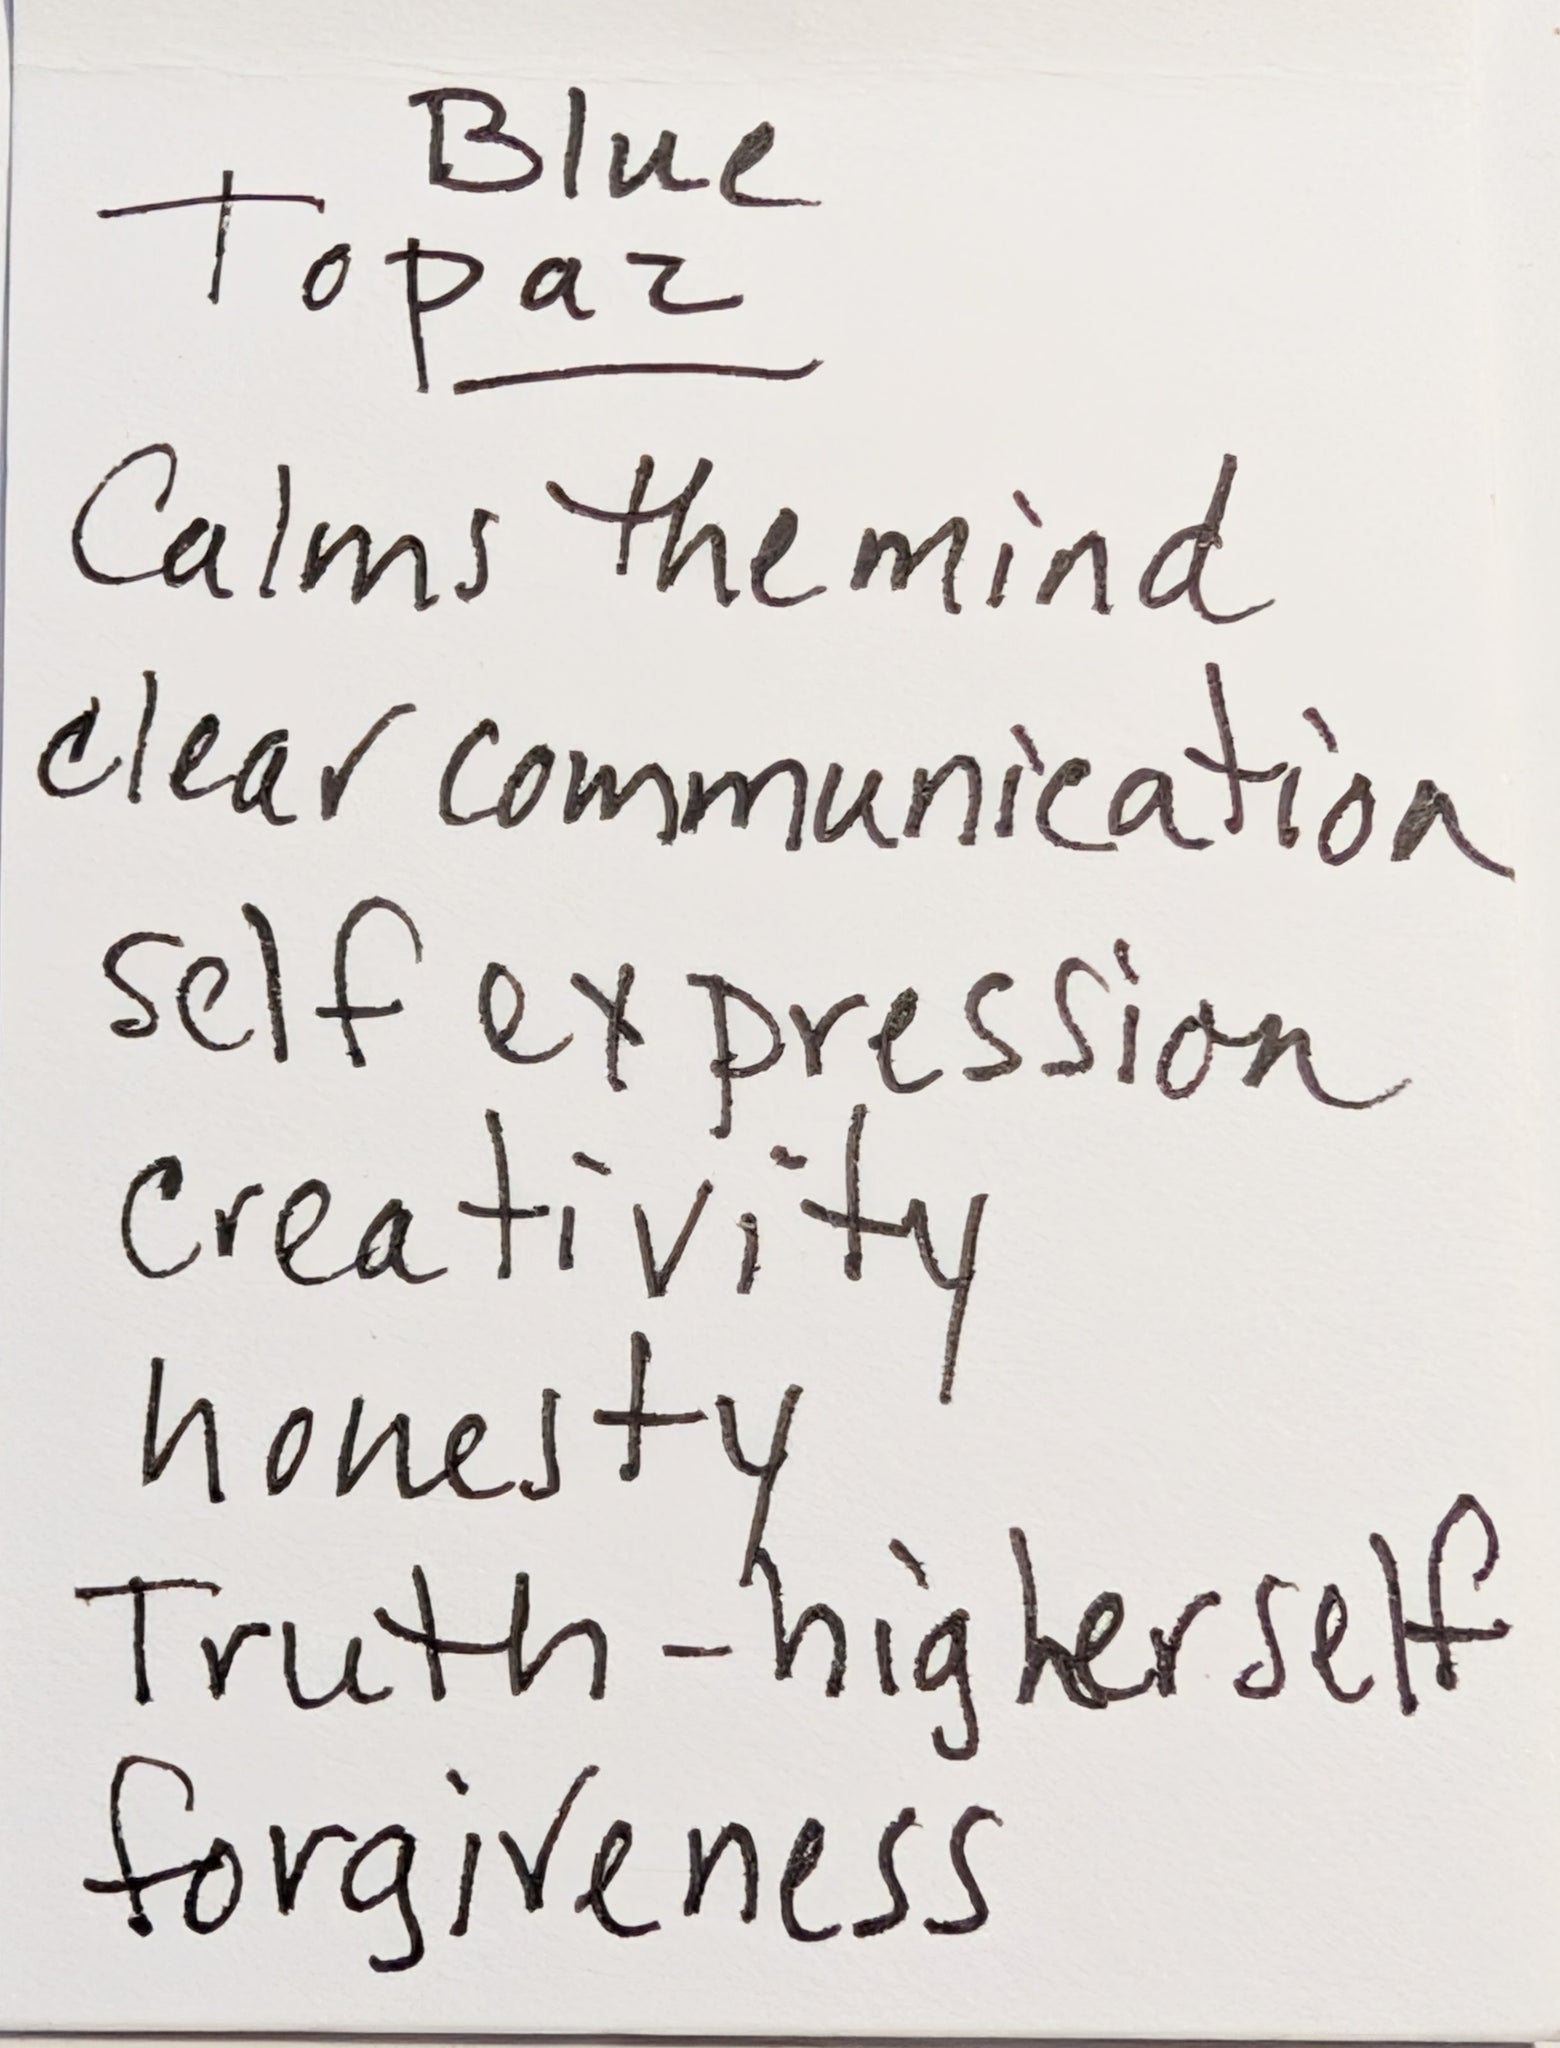 Blue
Topaz
Calms the mind
clear communication
self expression
creativity
honesty
Truth - higher self
forgiveness